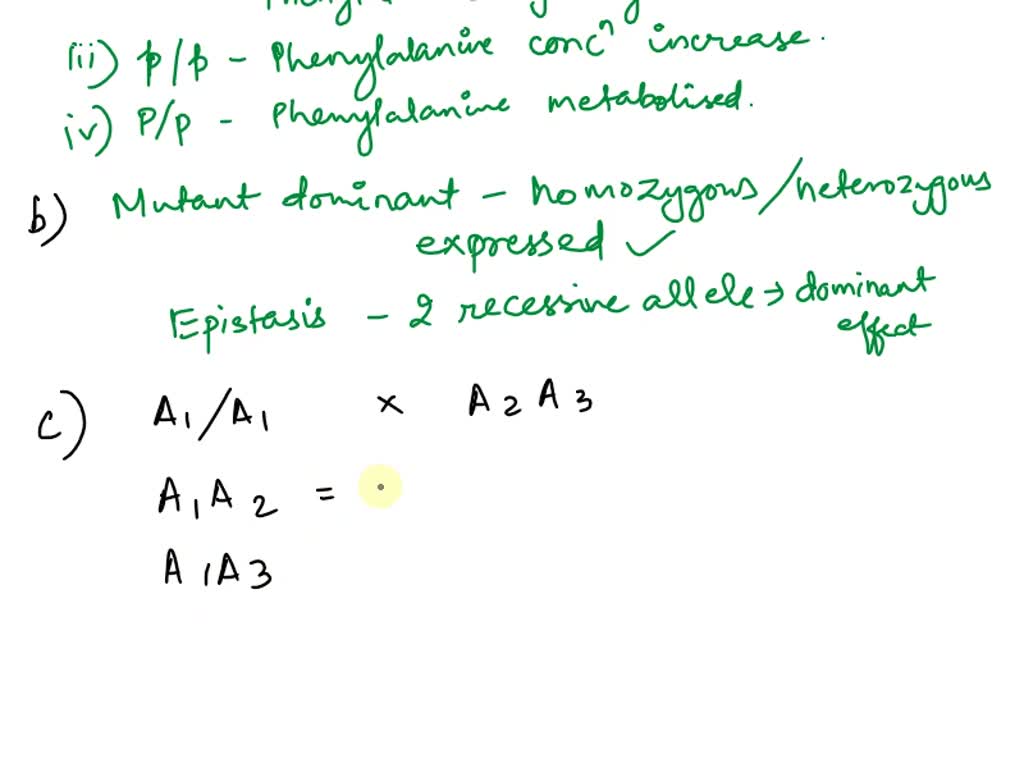 (ii) p/p - Phenylalanine concⁿ increase.
iv) P/p - Phenylalanine metabolised.
b) Mutant dominant - homozygous/heterozygous
expressed ✓
Epistasis - 2 recessive allele → dominant
effect
c) A₁/A₁ × A₂A₃
A₁A₂ =
A₁A₃